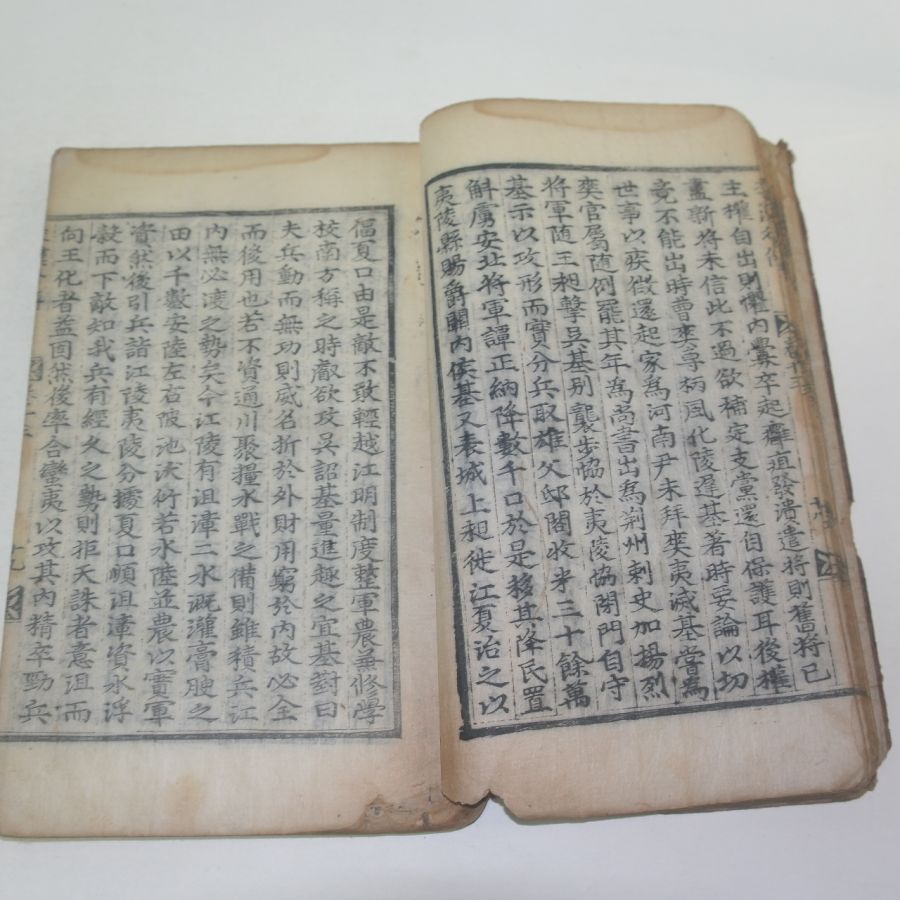 主權自出則懼內釁卒起癰疽發潰遣將則舊將已
盡新將未信此不過欲補定支黨還自保護耳後權
竟不能出時曹爽專柄風化陵遲基著時要論以切
世事以疾徵還起家為河南尹未拜爽夷滅基嘗為
爽官屬隨例罷其年為尚書出為荊州刺史加揚烈
將軍隨王昶擊吳基別襲步協於夷陵協閉門自守
基示以攻形而實分兵取雄父邸閣收米三十餘萬
斛虜安北將軍譚正納降數千口於是移其降民置
夷陵縣賜爵關內侯基又表城上昶徙江夏治之以
偪夏口由是敵不敢輕越江明制度整軍農兼修學
校南方稱之時欲攻吳詔基量進趣之宜基對曰
夫兵動而無功則威名折於外財用窮於內故必全
而後用也若不資通川聚糧水戰之備則雖積兵江
內無必渡之勢矣今江陵有沮漳二水溉灌膏腴之
田以千數安陸左右陂池沃衍若水陸並農以實軍
資然後引兵詣江陵夷陵分據夏口順沮漳資水浮
穀而下敵知我兵有經久之勢則拒天誅者意沮而
向王化者益固然後率合蠻夷以攻其內精卒勁兵